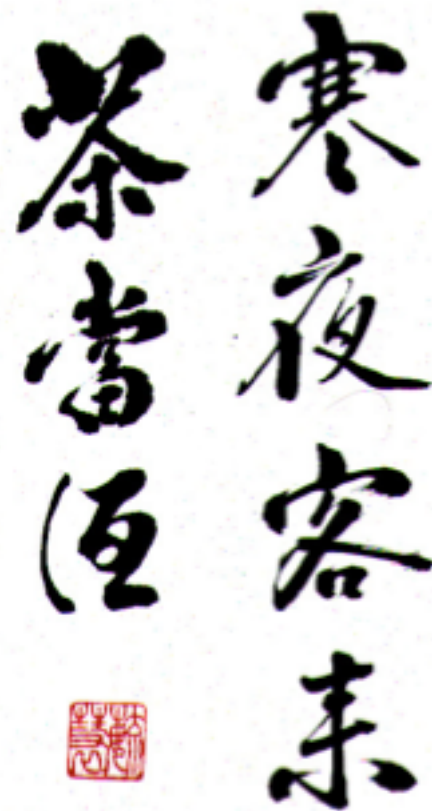 寒夜客来
茶當酒